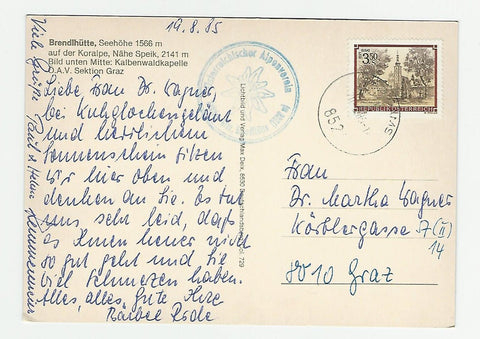 19.8.85
Brendlhütte, Seehöhe 1566 m
auf der Koralpe, Nähe Speik, 2141 m
Bild unten Mitte: Kalbenwaldkapelle
Ö.A.V. Sektion Graz
Liebe Frau Dr. Wagner,
bei Kuhglockengeläut
und herrlichem
Sonnenschein sitzen
wir hier oben und
denken an Sie. Es tut
uns sehr leid, daß
es Ihnen heuer nicht
so gut geht und Sie
viel Schmerzen haben.
Alles, alles, Gute Ihre
Bärbel Rode
Viele Grüße
Paul u. Helene
Österreichischer Alpenverein
Lichtbild und Verlag Max Deix, 8530
729
3.50
REPUBLIK ÖSTERREICH
852
Frau
Dr. Martha Wagner
Körblergasse 7 (II)
14
8010 Graz